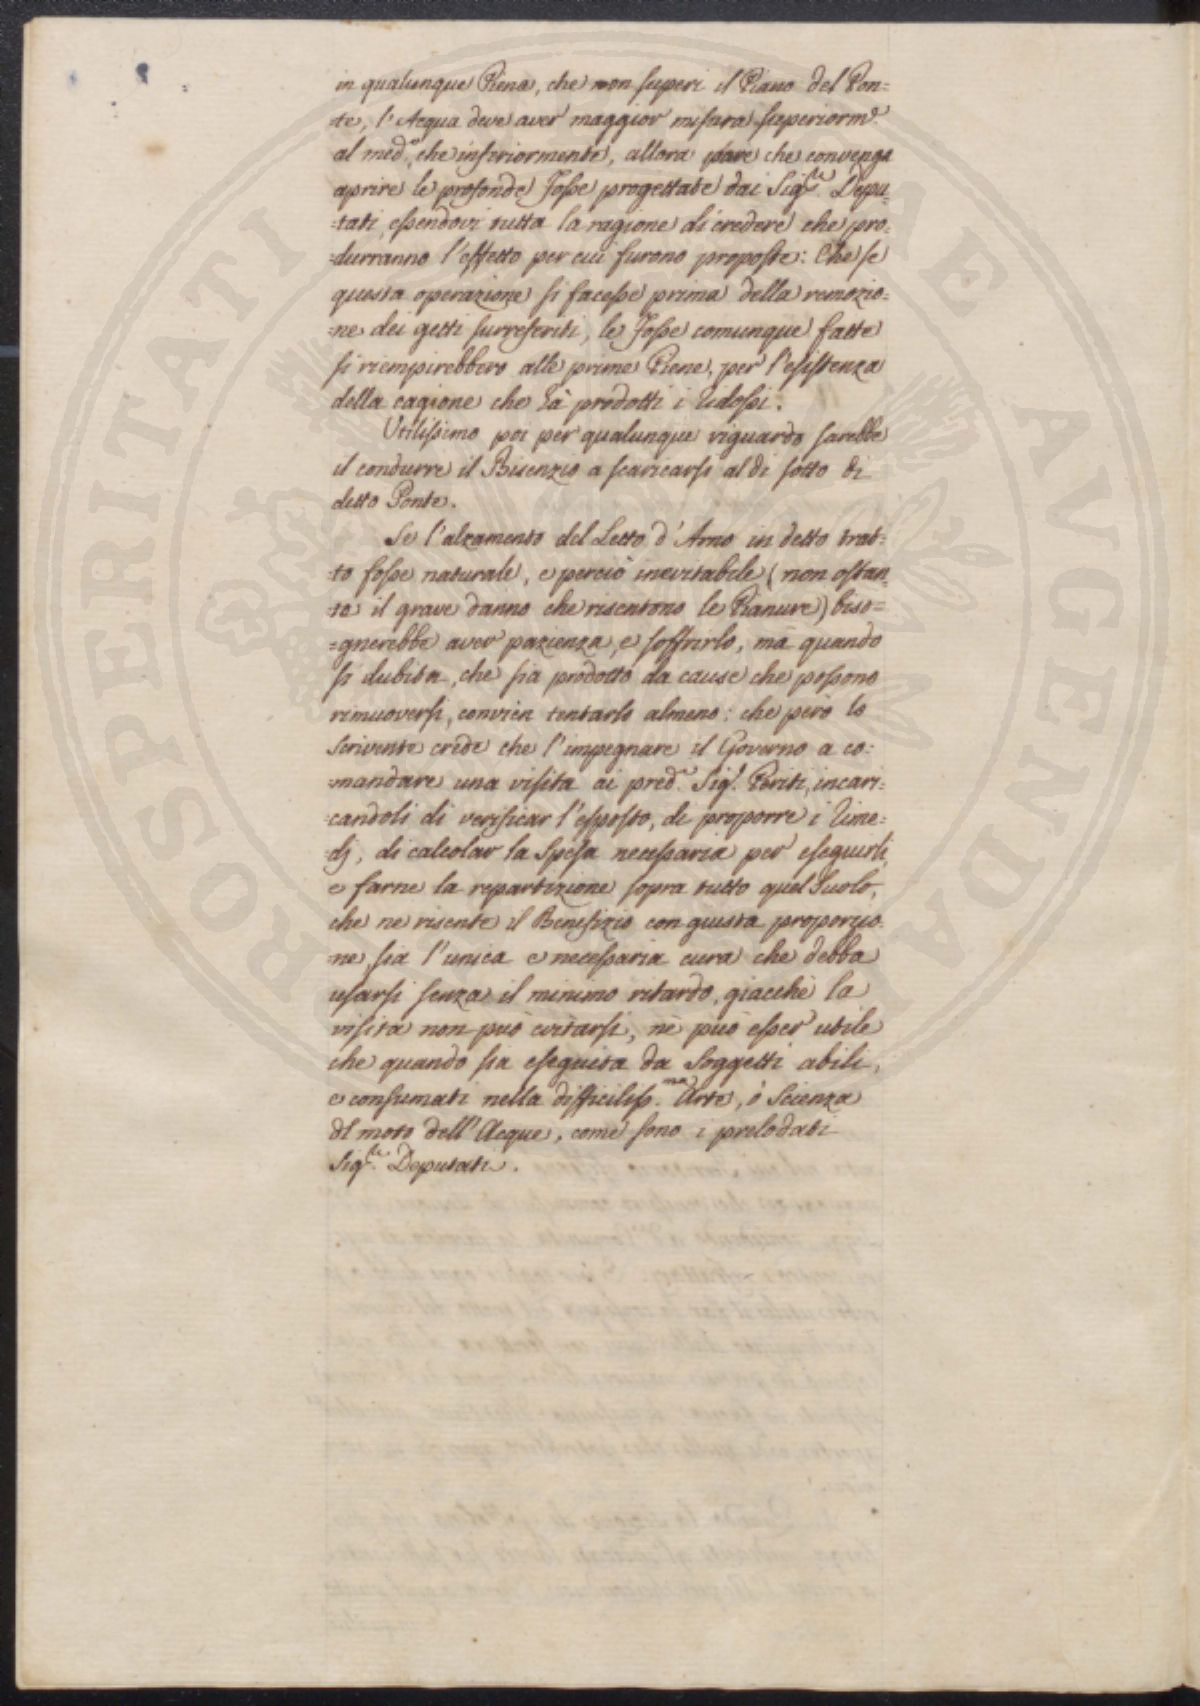 in qualunque Piena, che non superi il Piano del Pon=
te, l'Acqua deve aver maggior misura superiorm.e
al med.o, che inferiormente, allora pare che convenga
aprire le profonde Fosse progettate dai Sig.ri Depu=
=tati, essendovi tutta la ragione di credere che pro=
=durranno l'effetto per cui furono proposte: Che se
questa operazione si facesse prima della remozio=
=ne dei getti surreferiti, le Fosse comunque fatte
si riempirebbero alle prime Piene, per l'esistenza
della cagione che à prodotti i Ridossi.
Utilissimo poi per qualunque riguardo sarebbe
il condurre il Bisenzio a scaricarsi al di sotto di
detto Ponte.
Se l'alzamento del Letto d'Arno in detto trat=
=to fosse naturale, e perciò inevitabile (non ostan=
=te il grave danno che risentono le Pianure) biso=
=gnerebbe aver pazienza, e soffrirlo, mà quando
si dubita, che sia prodotto da cause che possono
rimuoversi, convien tentarlo almeno: che però lo
Scrivente crede che l'impegnare il Governo a co=
mandare una visita ai pred.i Sig.i Periti, incari=
=candoli di verificar l'esposto, di proporre i Rime=
=dj, di calcolar la Spesa necessaria per eseguirli,
e farne la repartizione sopra tutto quel Suolo,
che ne risente il Benefizio con giusta proporzio=
=ne sia l'unica e necessaria cura che debba
usarsi senza il minimo ritardo, giacchè la
visita non può evitarsi, nè può esser utile
che quando sia eseguita da Soggetti abili,
e consumati nella difficiliss.ma Arte, ò Scienza
del moto dell'Acque, come sono i prelodati
Sig.ri Deputati.
PROSPERITATI AVGENDAE